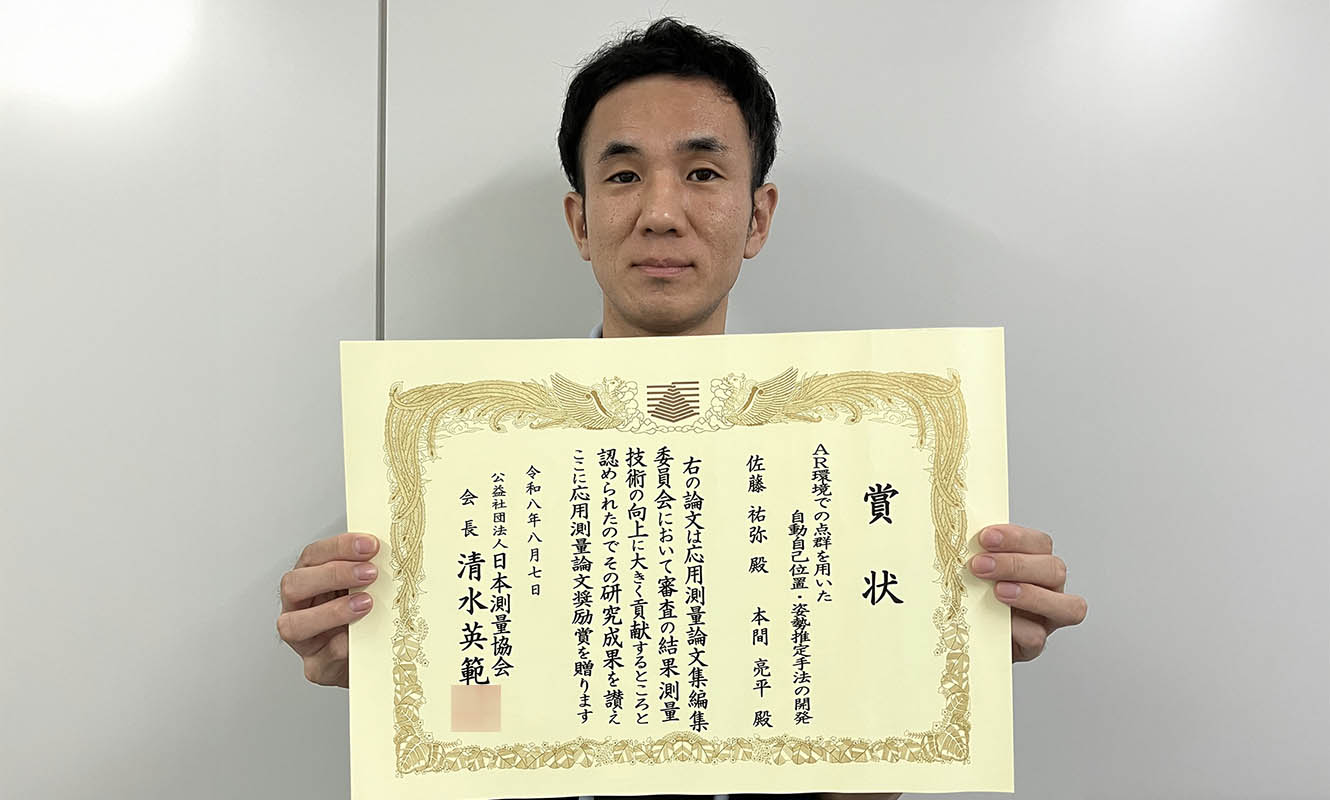 賞状
AR環境での点群を用いた
自動自己位置・姿勢推定手法の開発
佐藤 祐弥 殿 本間 亮平 殿
右の論文は応用測量論文集編集
委員会において審査の結果測量
技術の向上に大きく貢献するところと
認められたのでその研究成果を讃え
ここに応用測量論文奨励賞を贈ります
令和八年八月七日
公益社団法人日本測量協会
会長 清水英範